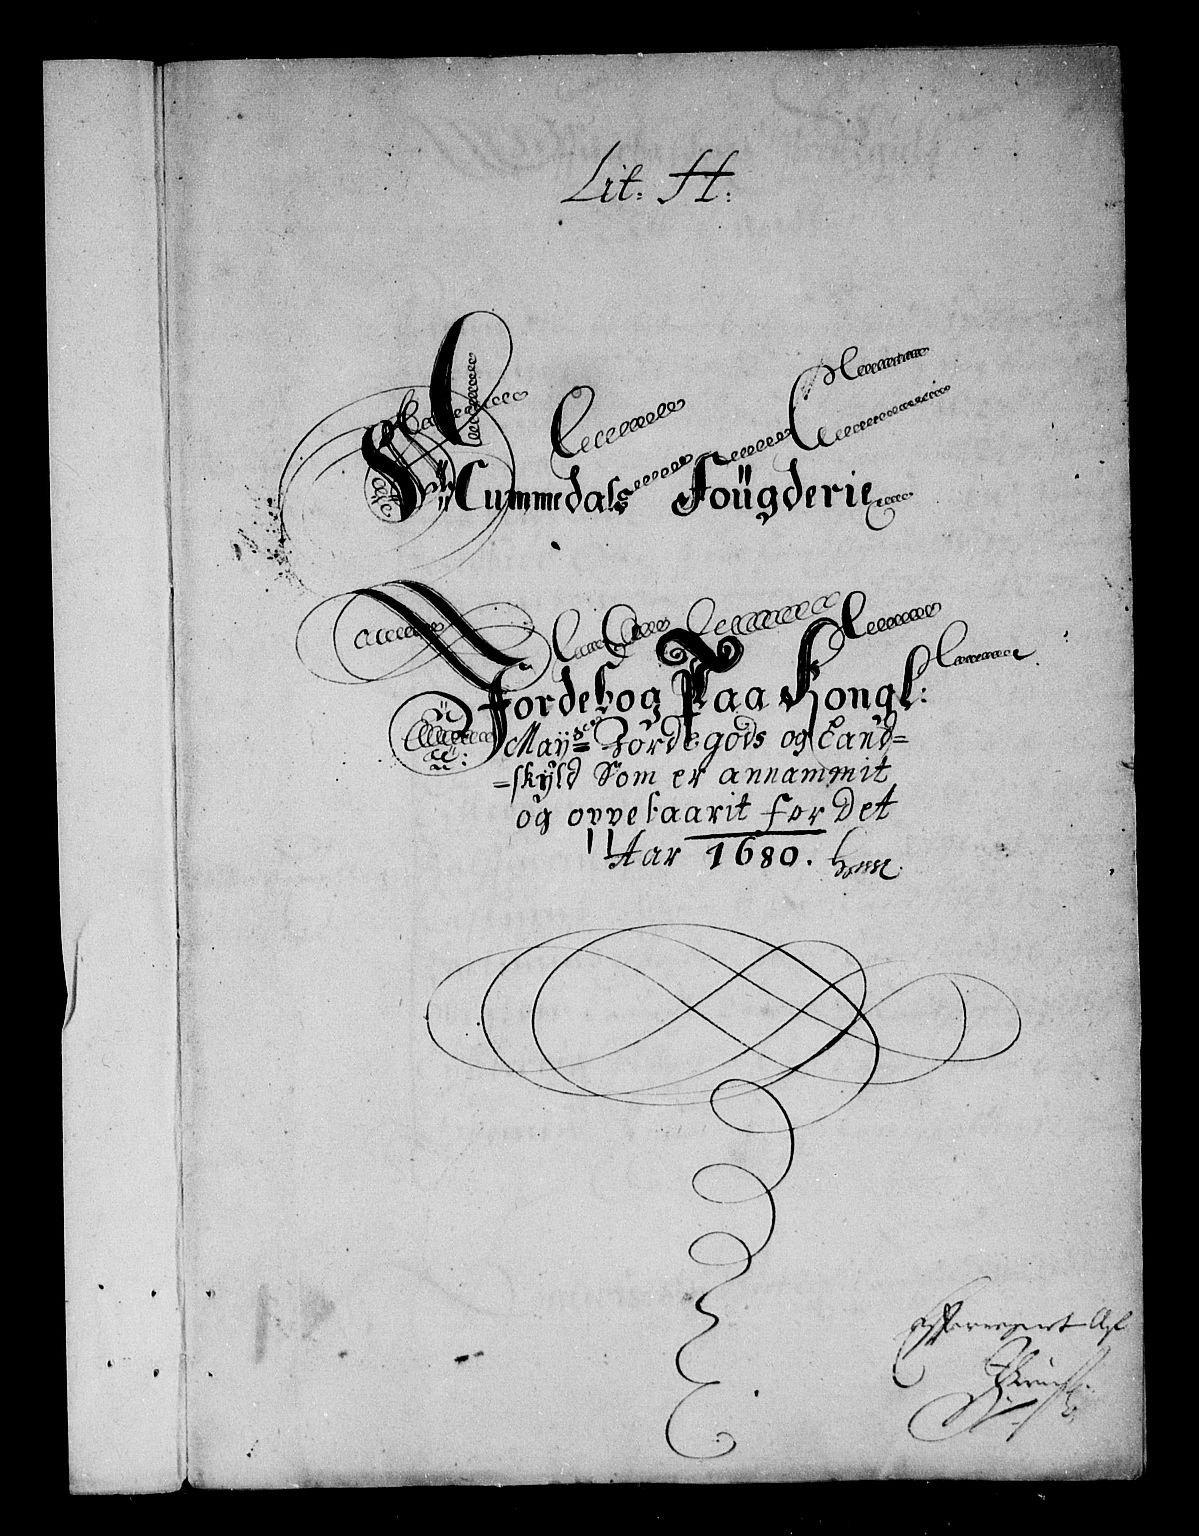 Lit: H:
Nummedals Foügderie
Jordebog Paa Kongl:
Mayts Jordegods og Land=
=skÿld Som er annammit
og oppebaarit for Det
Aar 1680.
Efterregnet Af